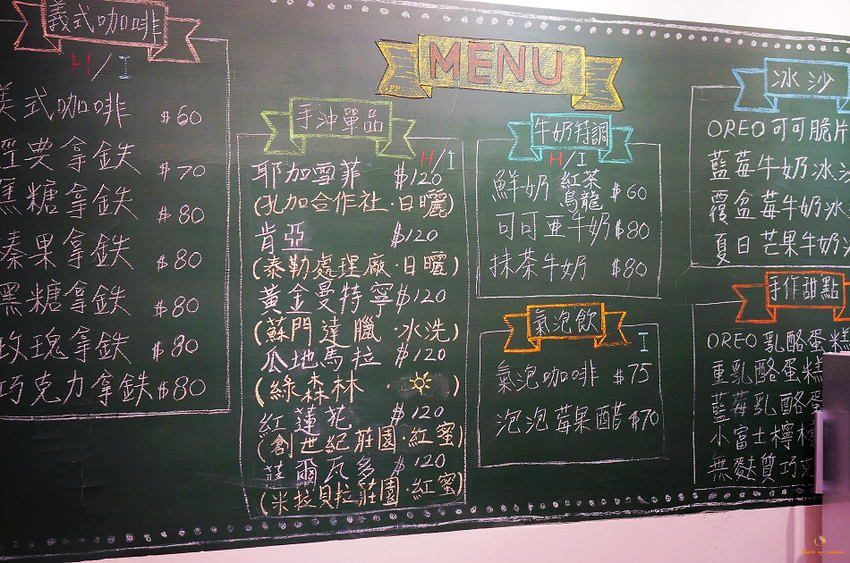 MENU
義式咖啡
H / I
美式咖啡 $60
經典拿鉄 $70
焦糖拿鉄 $80
榛果拿鉄 $80
黑糖拿鉄 $80
玫瑰拿鉄 $80
巧克力拿鉄 $80
手沖單品
H / I
耶加雪菲 $120
(孔加合作社·日曬)
肯亞 $120
(泰勒處理廠·日曬)
黃金曼特寧 $120
(蘇門達臘·水洗)
瓜地馬拉 $120
(綠森林·☀)
紅蓮花 $120
(創世紀莊園·紅蜜)
薩爾瓦多 $120
(米拉貝拉莊園·紅蜜)
牛奶特調
H / I
鮮奶 紅茶 烏龍 $60
可可亞牛奶 $80
抹茶牛奶 $80
氣泡飲
I
氣泡咖啡 $75
泡泡莓果醋 $70
冰沙
OREO可可脆片
藍莓牛奶冰沙
覆盆莓牛奶冰
夏日芒果牛奶
手作甜點
OREO乳酪蛋糕
重乳酪蛋糕
藍莓乳酪蛋
小富士檸檬
無麩質巧